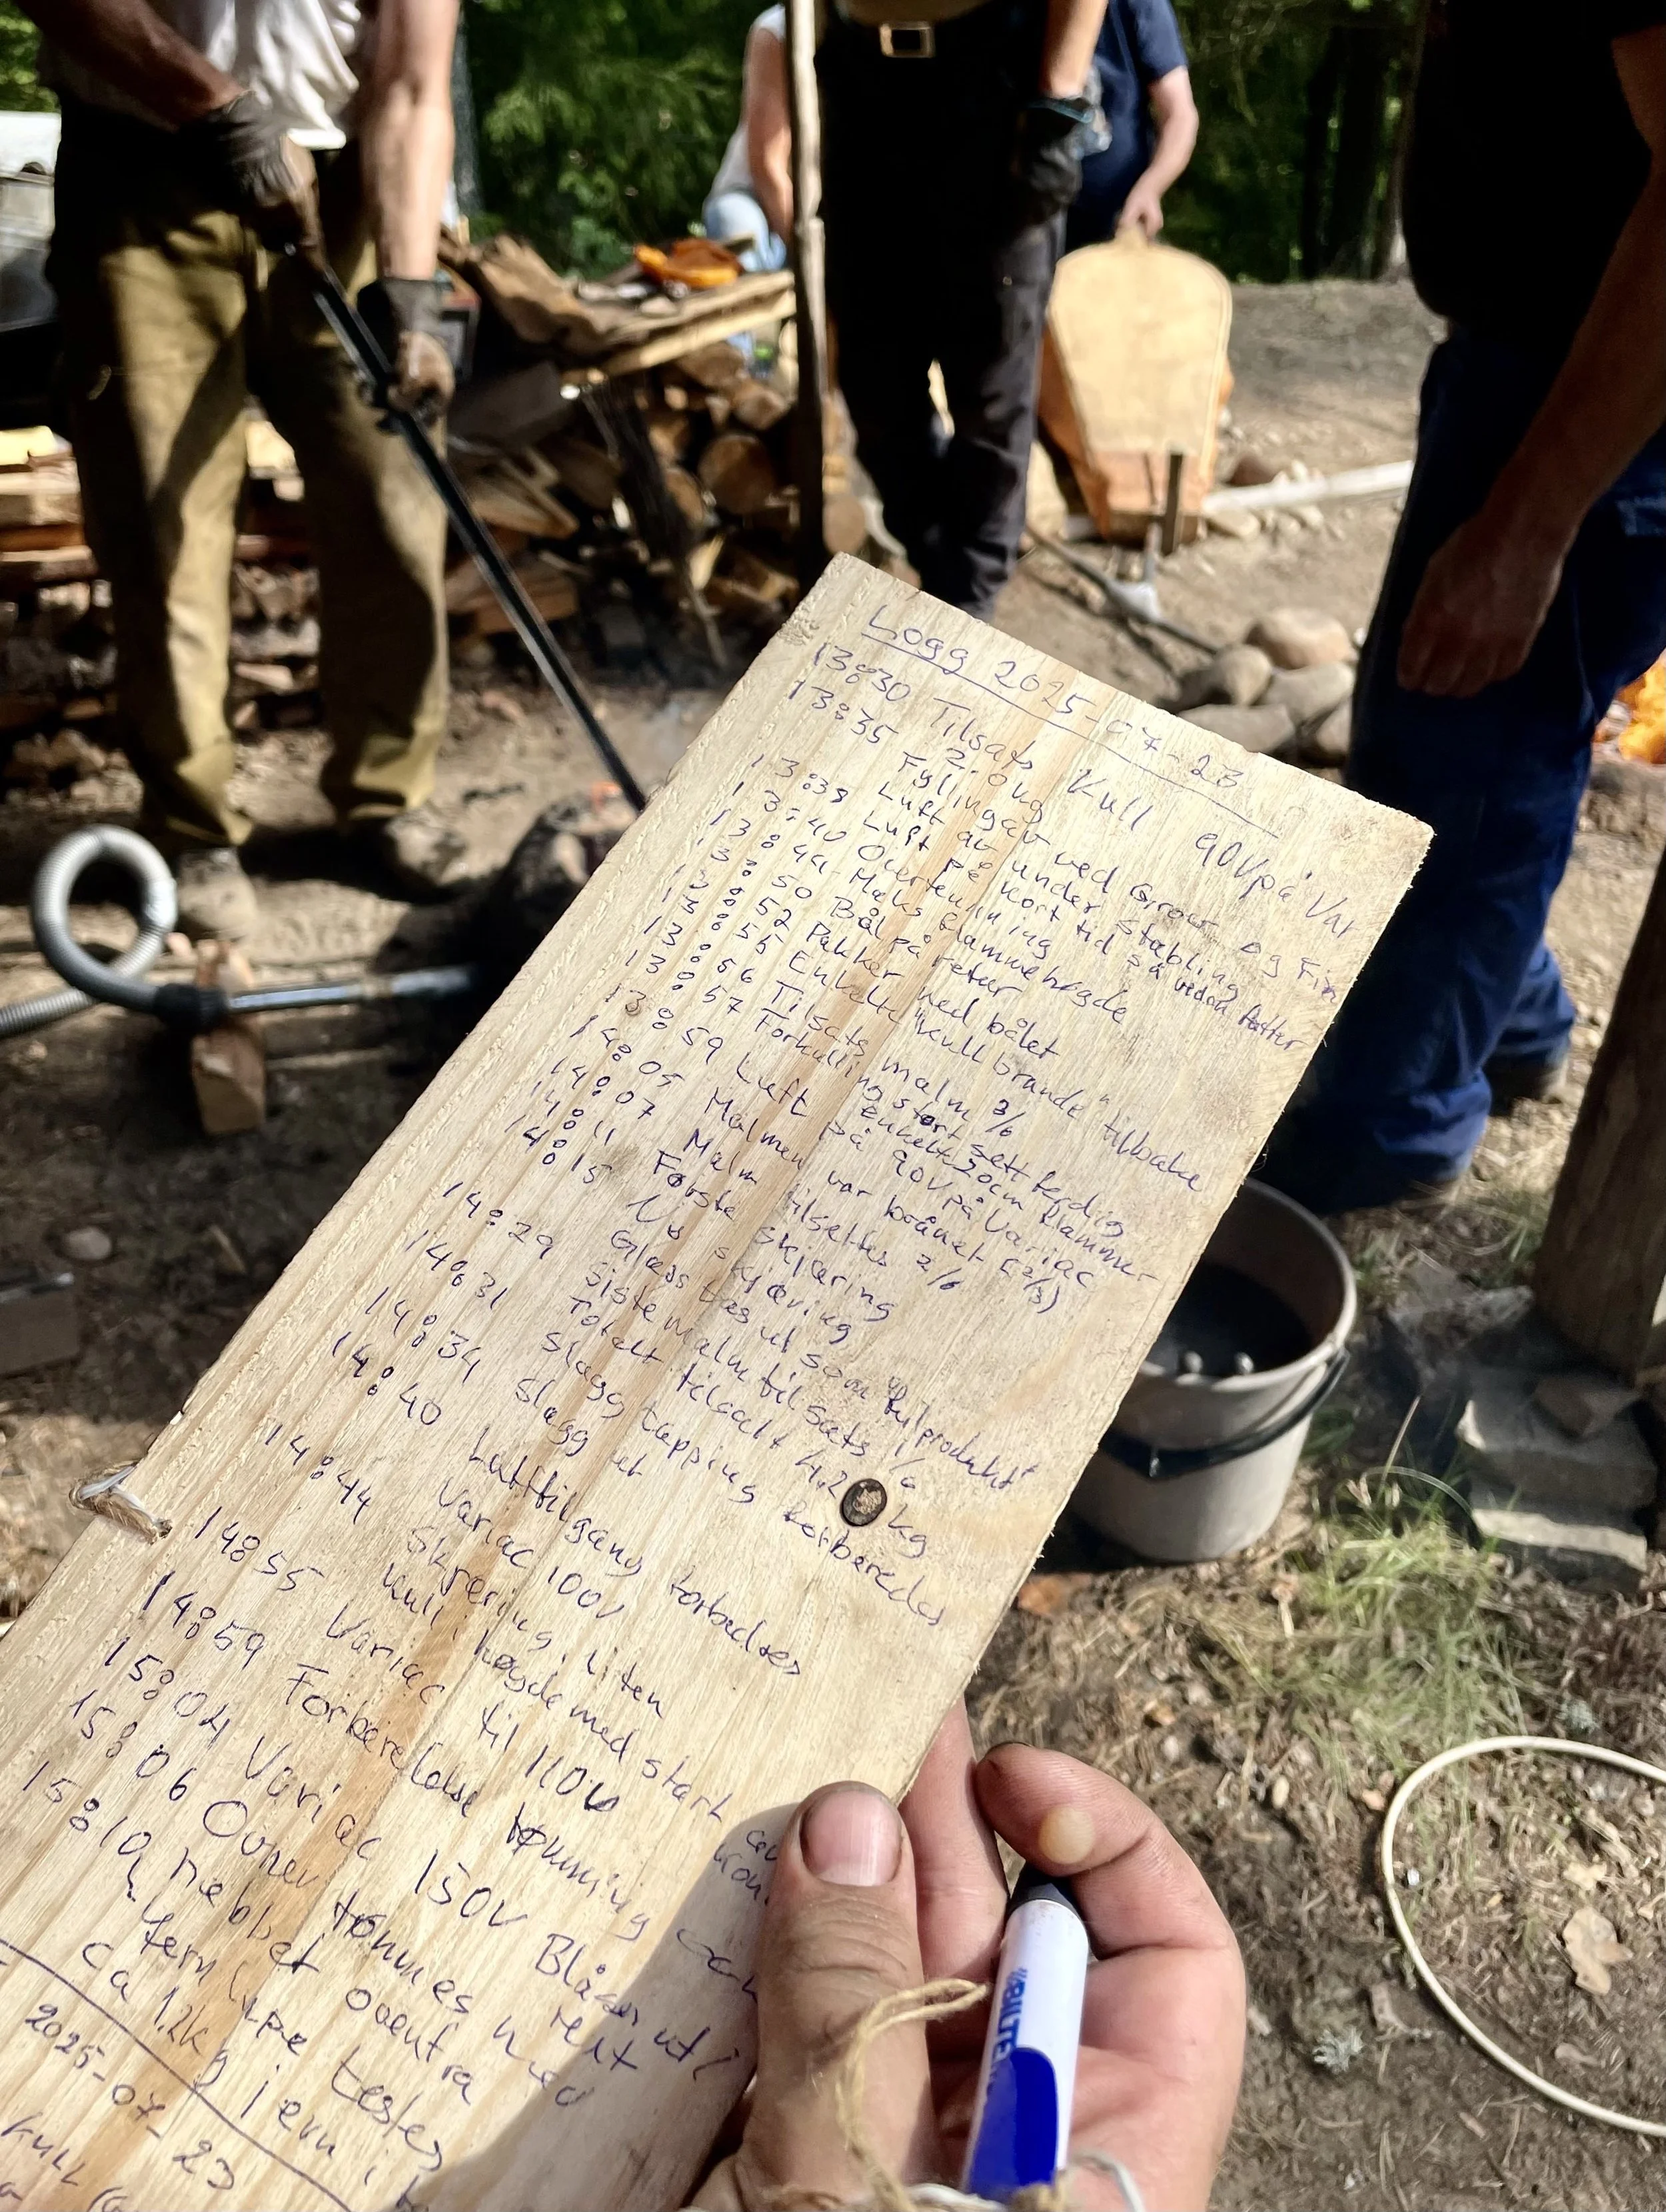 Logg 2025-07-23
13:30 Tilsats Kull 90V på Var
2.0 kg
13:35 Fyling av ved Grov og Fin
13:38 Luft av under stabling
13:40 Luft på kort tid så veden fattur
Overtenning
13:44 Maks flammehøgde
13:50 Bål på retur
13:52 Pakker ned bålet
13:55 Enkelte "kullbrande" tilbake
13:56 Tilsats malm 3/6
13:57 Forkulling stort sett ferdig
Enkelte 20cm flammer
13:59 Luft på 90V på Variac
14:05 Malmen var brånet (2/3)
14:07 Malm tilsettes 2/6
14:11 Første skjæring
14:15 Ny skjæring
Glass tas ut som "fulprodukt"
14:29 Siste malm tilsats 1/6
Totalt tilsatt 4.2 kg
14:31 Slagg tapping forberedes
14:34 Slagg ut
14:40 Lufttilgang forbedres
Variac 100V
14:44 Skjæring, liten
kull i høgde med start
14:55 Variac til 110V
14:59 Forberedelse tømming
15:04 Variac 150V Blåser ut
15:06 Ovnen tømmes rett ned
15:10 nebbet ovenfra
Jern testes
ca 1.2kg jern
2025-07-23
Kull
BILTE